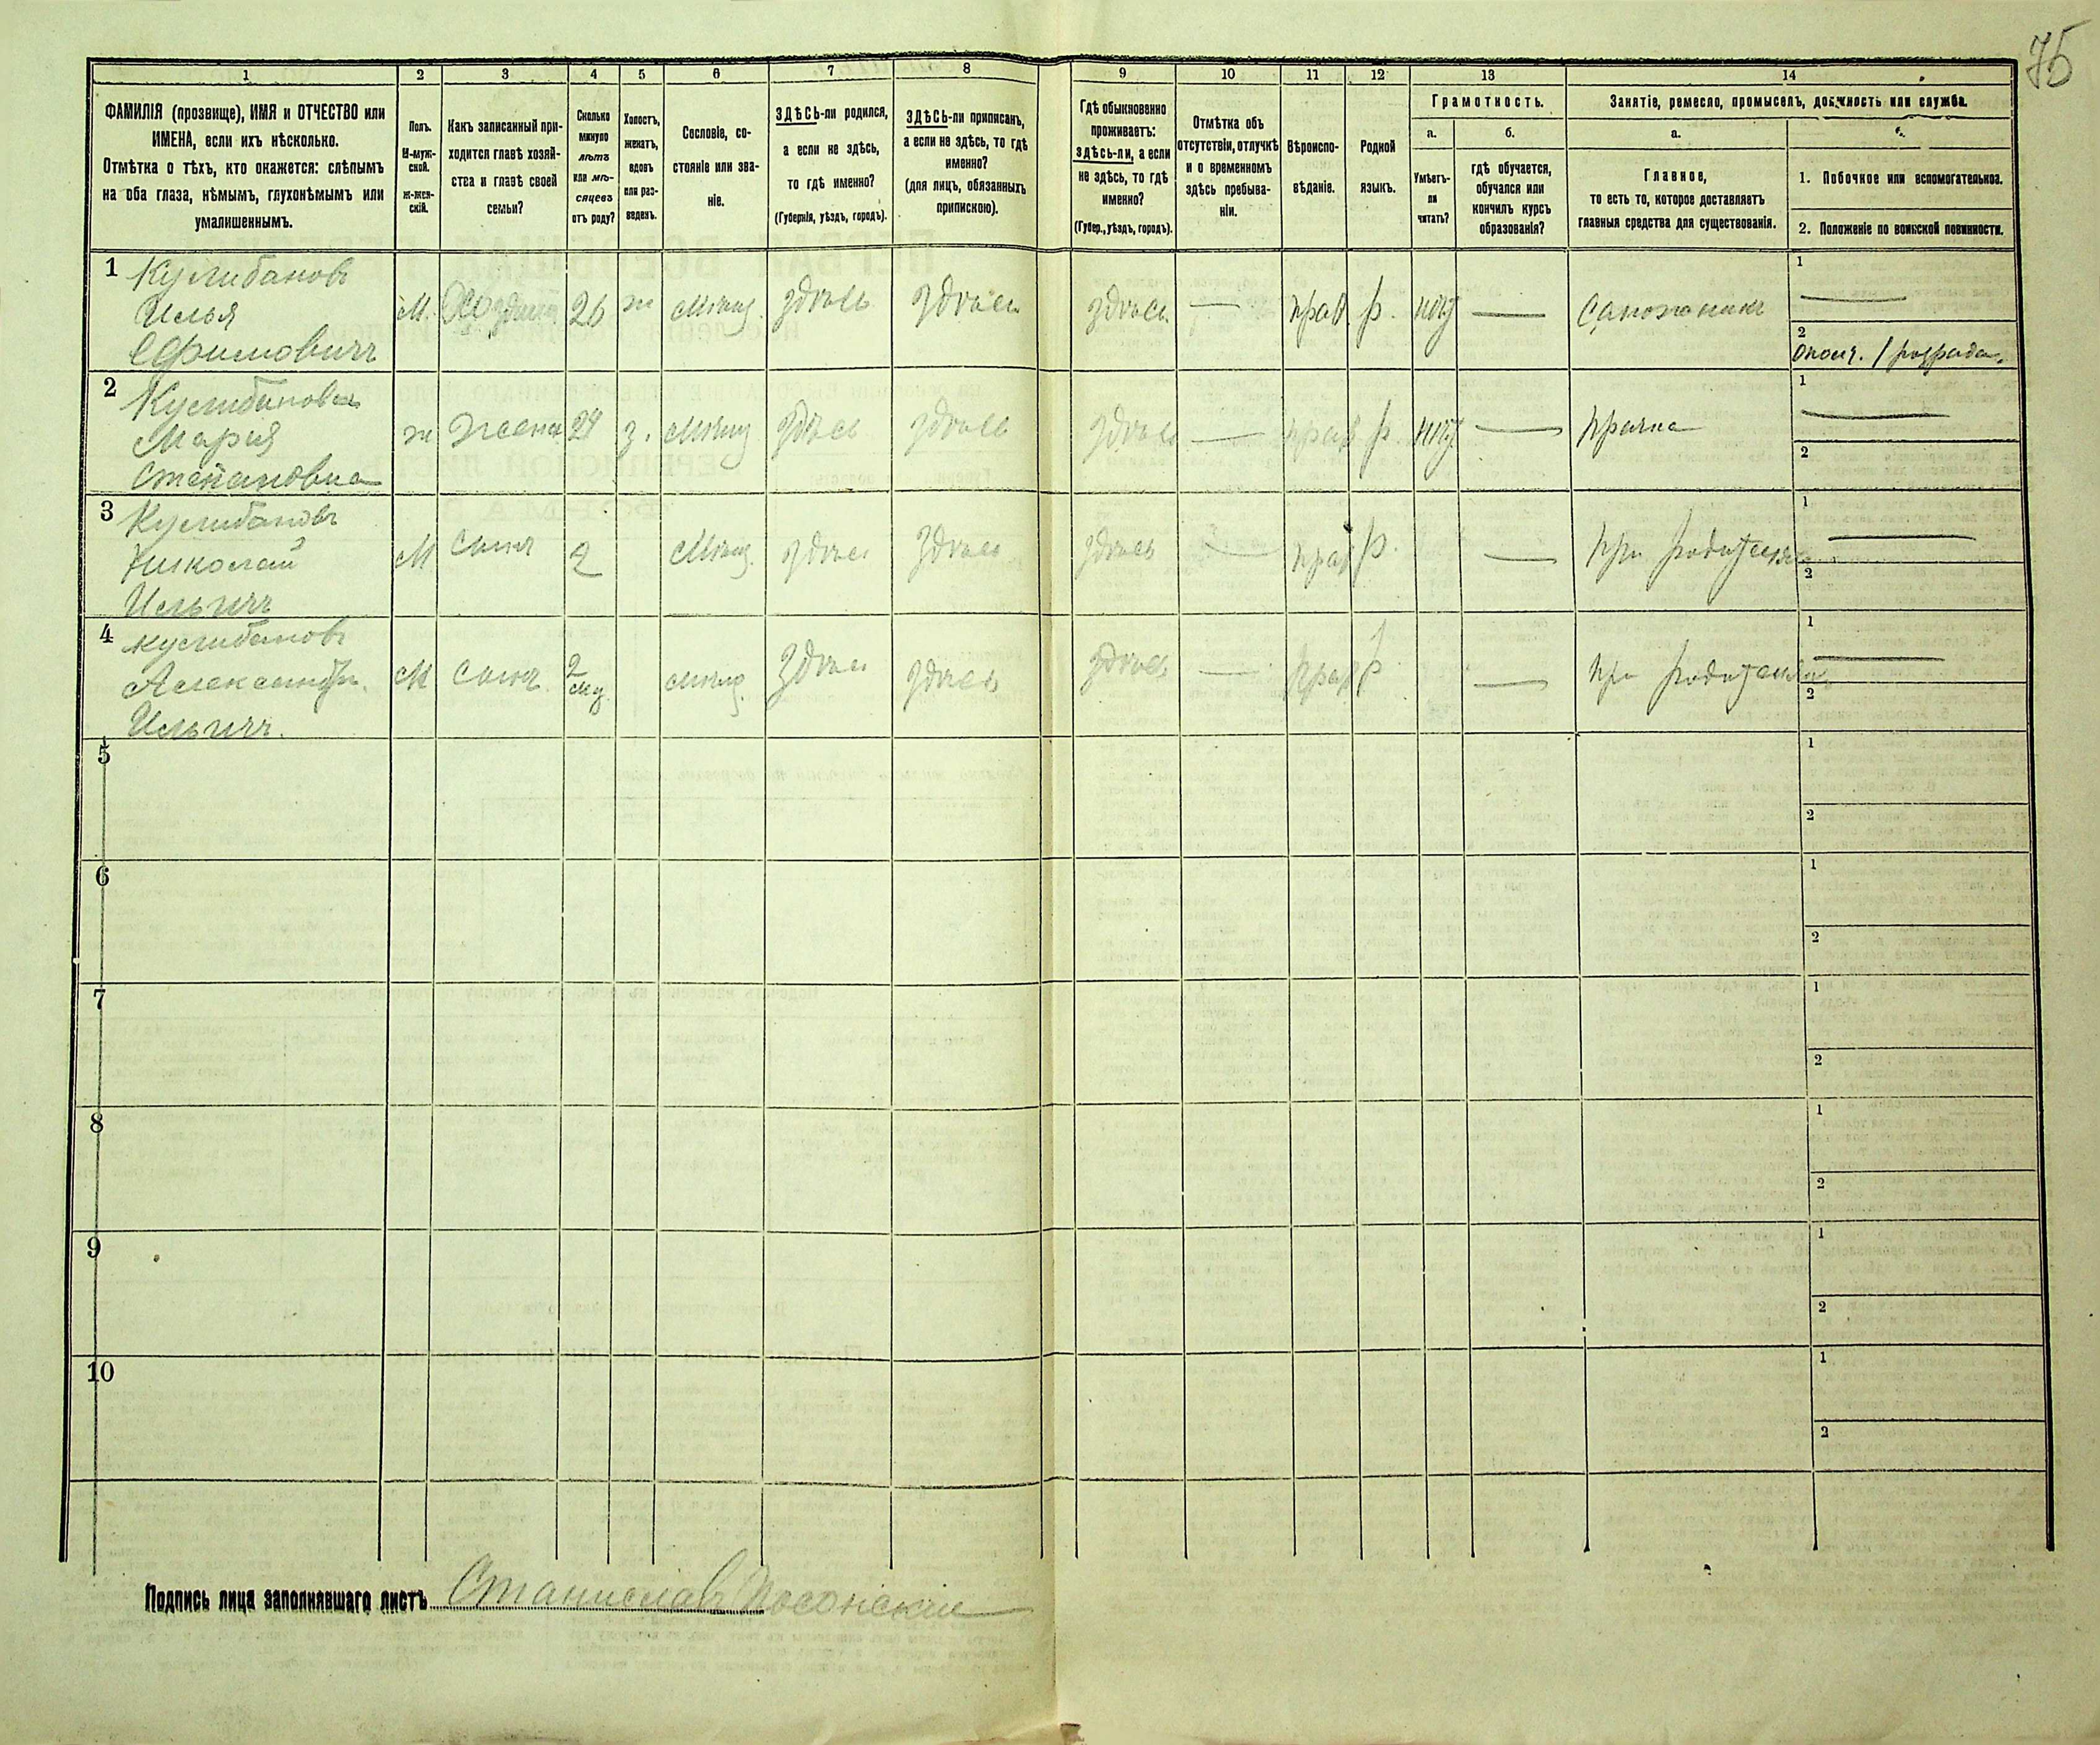 75
1 2 3 4 5 6 7 8 9 10 11 12 13 14
ФАМИЛІЯ (прозвище), ИМЯ и ОТЧЕСТВО или
ИМЕНА, если ихъ нѣсколько.
Отмѣтка о тѣхъ, кто окажется: слѣпымъ
на оба глаза, нѣмымъ, глухонѣмымъ или
умалишеннымъ.
Полъ.
М-муж-
ской.
Ж-жен-
скій.
Какъ записанный при-
ходится главѣ хозяй-
ства и главѣ своей
семьи?
Сколько
минуло
лѣтъ
или мѣ-
сяцевъ
отъ роду?
Холостъ,
женатъ,
вдовъ
или раз-
веденъ.
Сословіе, со-
стояніе или зва-
ніе.
ЗДѢСЬ-ли родился,
а если не здѣсь,
то гдѣ именно?
(Губернія, уѣздъ, городъ).
ЗДѢСЬ-ли приписанъ,
а если не здѣсь, то гдѣ
именно?
(для лицъ, обязанныхъ
припискою).
Гдѣ обыкновенно
проживаетъ:
ЗДѢСЬ-ли, а если
не здѣсь, то гдѣ
именно?
(Губер., уѣздъ, городъ).
Отмѣтка объ
отсутствіи, отлучкѣ
и о временномъ
здѣсь пребыва-
ніи.
Вѣроиспо-
вѣданіе.
Родной
языкъ.
Грамотность.
а.
Умѣетъ-
ли
читать?
б.
гдѣ обучается,
обучался или
кончилъ курсъ
образованія?
Занятіе, ремесло, промыселъ, должность или служба.
а.
Главное,
то есть то, которое доставляетъ
главныя средства для существованія.
1. Побочное или вспомогательное.
2. Положеніе по воинской повинности.
1 Кулибановъ
Илья
Ефимовичъ
М. 26 ж мѣщ здѣсь здѣсь здѣсь — прав. р. нѣтъ — Сапожникъ
1 —
2 ополч. 1 разряда.
2 Кулибанова
Марія
Степановна
ж Жена 24 з. мѣщ здѣсь здѣсь здѣсь — прав р. нѣтъ — прачка
1 —
2
3 Кулибановъ
Николай
Ильичъ
М Сынъ 2 мѣщ. здѣсь здѣсь здѣсь — прав р. — при родителяхъ
1 —
2
4 Кулибановъ
Александръ
Ильичъ.
М Сынъ 2 мц. мѣщ. здѣсь здѣсь здѣсь — прав р — при родителяхъ
1 —
2
5
1
2
6
1
2
7
1
2
8
1
2
9
1
2
10
1
2
Подпись лица заполнявшаго листъ Станиславъ